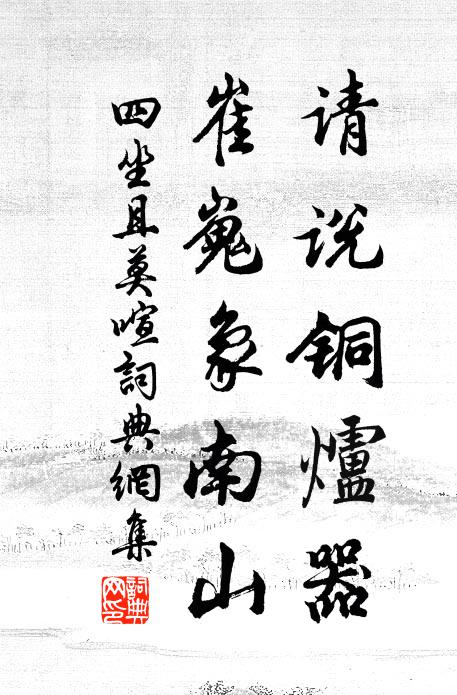 请说铜爐器
崔嵬象南山
四坐且莫喧詞典網集
詞典网印